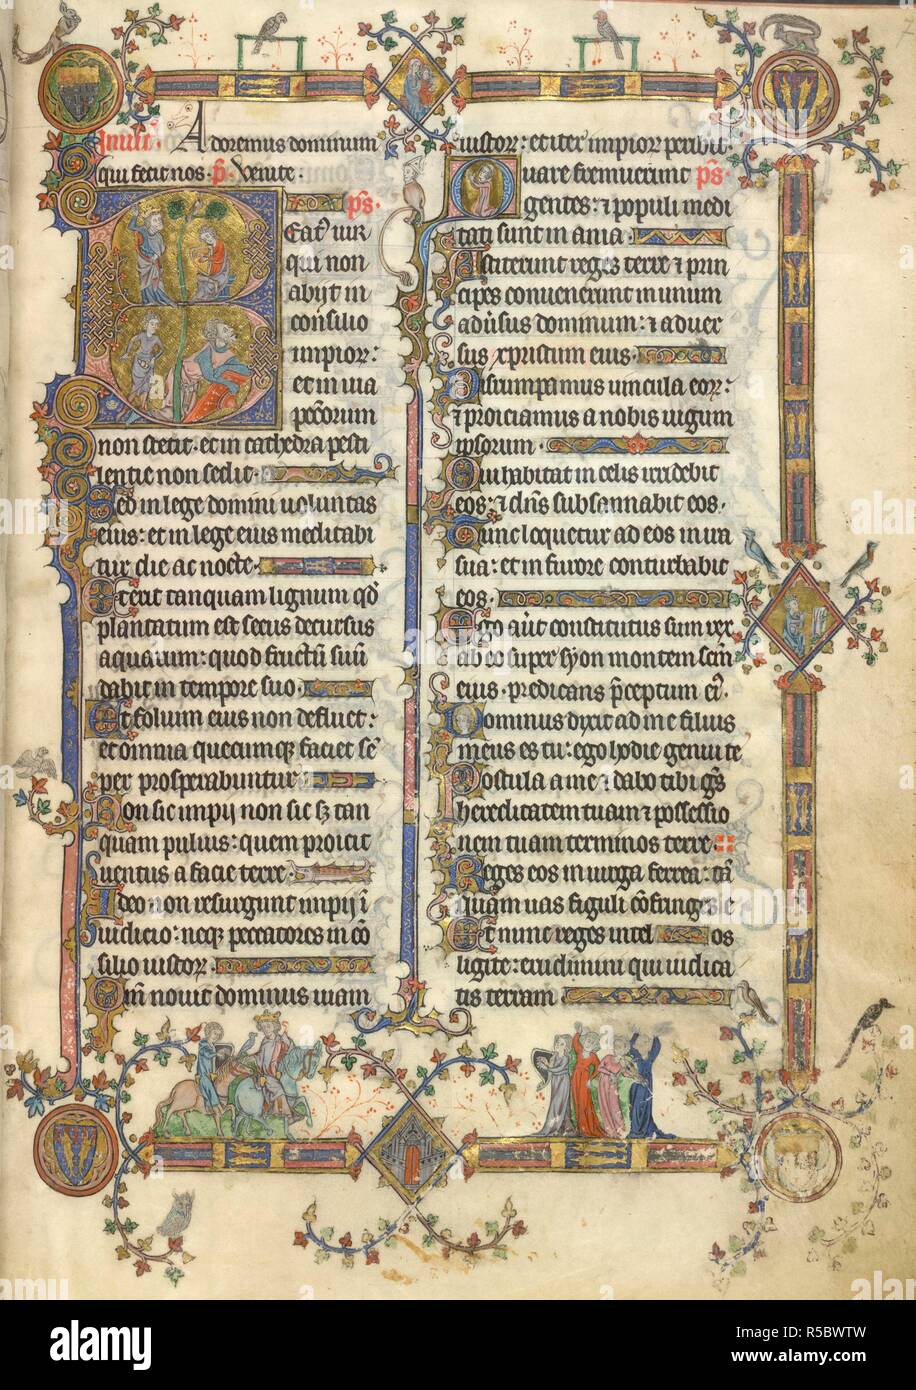 Inuit̾. Adoremus dominum
qui fecit nos. p̃. Venite.
p̃s.
Beat᾽ uir
qui non
abijt in
consilio
impior:
et in uia
peccͦrum
non stetit. et in cathedra pesti
lentie non sedit.
Sed in lege domini uoluntas
eius: et in lege eius meditabi
tur die ac nocte.
Et erit tanquam lignum qđ
plantatum est secus decursus
aquarum: quod fructū suū
dabit in tempore suo.
Et folium eius non defluet:
et omnia quecumqꝫ faciet sē
per prosperabuntur.
Non sic impij non sic sꝫ tan
quam puluis: quem proicit
uentus a facie terre.
Ideo non resurgunt impij ī
iudicio: neqꝫ peccatores in cō
silio iustoꝝ.
Qm̄ nouit dominus uiam
iustoꝝ: et iter impioꝝ peribit.
Quare fremuerunt p̃s.
gentes: ⁊ populi medi
tati sunt in ania.
Astiterunt reges terre ⁊ prin
cipes conuenerunt in unum
aduͥsus dominum: ⁊ aduer
sus xpristum eius.
Disrumpamus uincula eoꝝ:
⁊ proiciamus a nobis iugum
ipsorum.
Qui habitat in celis irridebit
eos: ⁊ dn̄s subsannabit eos.
Tunc loquetur ad eos in ira
sua: et in furore conturbabit
eos.
Ego aūt constitutus sum rex
ab eo super syon montem scm̄
eius. predicans p̄ceptum ei᾽.
Dominus dixit ad me filius
meus es tu: ego hodie genui te
Postula a me ⁊ dabo tibi gēs
hereditatem tuam ⁊ possessio
nem tuam terminos terre
Reges eos in uirga ferrea: tā
quam uas figuli cōfringes e
os
Et nunc reges intel
ligite: erudimini qui iudica
tis terram
a
alamy stock photo
alamy
Image ID: R5BWTW
www.alamy.com